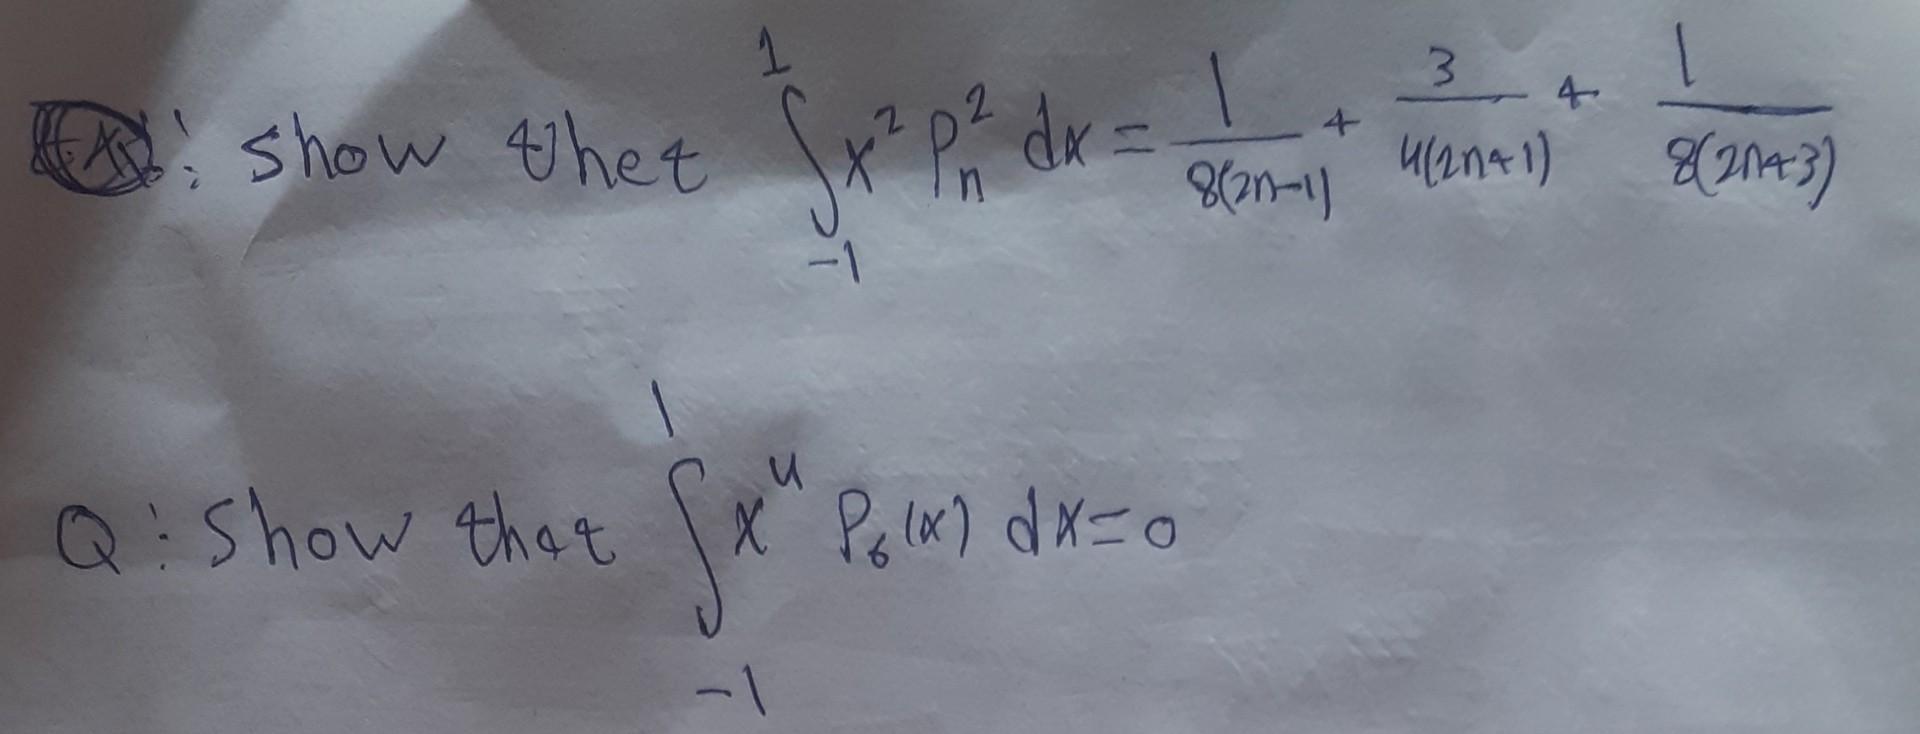 Ex: show thet ∫₋₁¹ x² Pₙ² dx = 1/8(2n-1) + 3/4(2n+1) + 1/8(2n+3)
Q: show that ∫₋₁¹ x⁴ P₆(x) dx = 0